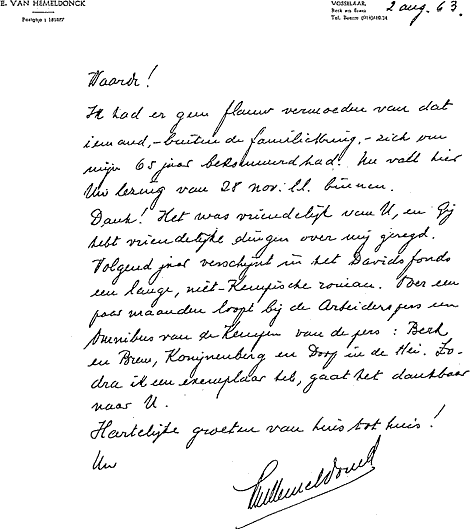 E. VAN HEMELDONCK
Postgiro : 161877
VOSSELAAR,
Berk en Brem
2 aug. 63.
Waarde!
Ik had er geen flauw vermoeden van dat
iemand, - buiten de familiekring, - zich om
mijn 65 jaar bekommerd had. Nu valt hier
Uw lezing van 28 nov. ll. binnen.
Dank! Het was vriendelijk van U, en Gij
hebt vriendelijke dingen over mij gezegd.
Volgend jaar verschijnt in het Davidsfonds
een lange, niet-Kempische roman. Over een
paar maanden loopt bij de Arbeiderspers een
Omnibus van de Kempen van de pers : Berk
en Brem, Konijnenberg en Dorp in de Hei. Zo-
dra ik een exemplaar heb, gaat het dankbaar
naar U.
Hartelijke groeten van huis tot huis!
Uw